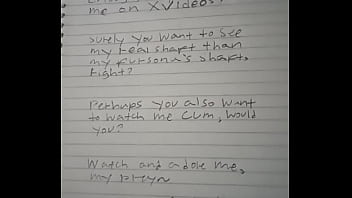 me on XVideos?
Surely you want to see
my real shaft than
my fursona's shaft,
right?
Perhaps you also want
to watch me cum, would
you?
Watch and adore me,
my preyn